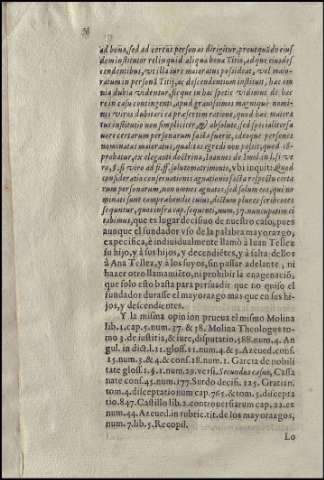 ad bona, sed ad certas personas dirigitur, prout quãdo eius
dem institutor relinquit aliqua bona Titio, atque eius des
cendentibus, ut illa iure maioratus possideat, vel maio-
ratum in personã Titij, ac descendentium instituit, hac om
nia dubia videntur, sicque in hac specie vidimus de hac
re in casu contingenti, apud grauissimos magnique nomi-
nis viros dubitari ea præsertim ratione, quod hac maiora
tus institutio non simpliciter, & absolute, sed specialiter in
tuere certarum personarum facta fuerit, adeoque personis
nominatus maioratus, qualitas egredi non possit, quod
probatur, ex eleganti doctrina, Ioannes de Imol. in l. si ve
ro, §. si vero ad fi. ff. soluto matrimonio, vbi inquit: Quod
consideratio conseruationis agnationis facta respectu certa
rum personarum, non omnes agnatos, sed solum eos, qui no
minati sunt comprehendas unius, dictum plures scribentes
sequuntur, quos infra cap. sequenti, num. 37. nuncupatim ci
tabimus, que es lugar decisiuo de nuestro caso, pues
aunque el fundador vso de la palabra mayorazgo,
expecifica, è indiuidualmente llamò à Iuan Tellez
su hijo, y à sus hijos, y decendiẽtes, y à falta dellos
à Ana Tellez, y à los suyos, sin passar adelante, ni
hazer otro llamamiẽto, ni prohibir la enagenaciõ,
que solo esto basta para persuadir que no quiso el
fundador durasse el mayorazgo mas que en sus hi-
jos, y descendientes.
Y la misma opinion prueua el mismo Molina
lib. 1. cap. 5. num. 37. & 38. Molina Theologus to-
mo 3. de iustitia, & iure, disputatio. 588. num. 4. An
gul. in dict. l. 11. gloss. 11. num. 4. & 5. Azeued. cons.
15. num. 3. & 4. & cons. 18. num. 1. Garcia de nobili
tate gloss. 1. §. 1. num. 29. vers. Secundus casus, Cassa
nate cons. 45. num. 177. Surdo decis. 225. Gratian.
tom. 4. disceptationum cap. 765. & tom. 5. discepta-
tio. 847. Castillo lib. 2. controuersiarum cap. 22. ex
num. 44. Azeued. in rubric. tit. de los mayorazgos,
num. 7. lib. 5. Recopil.
Lo